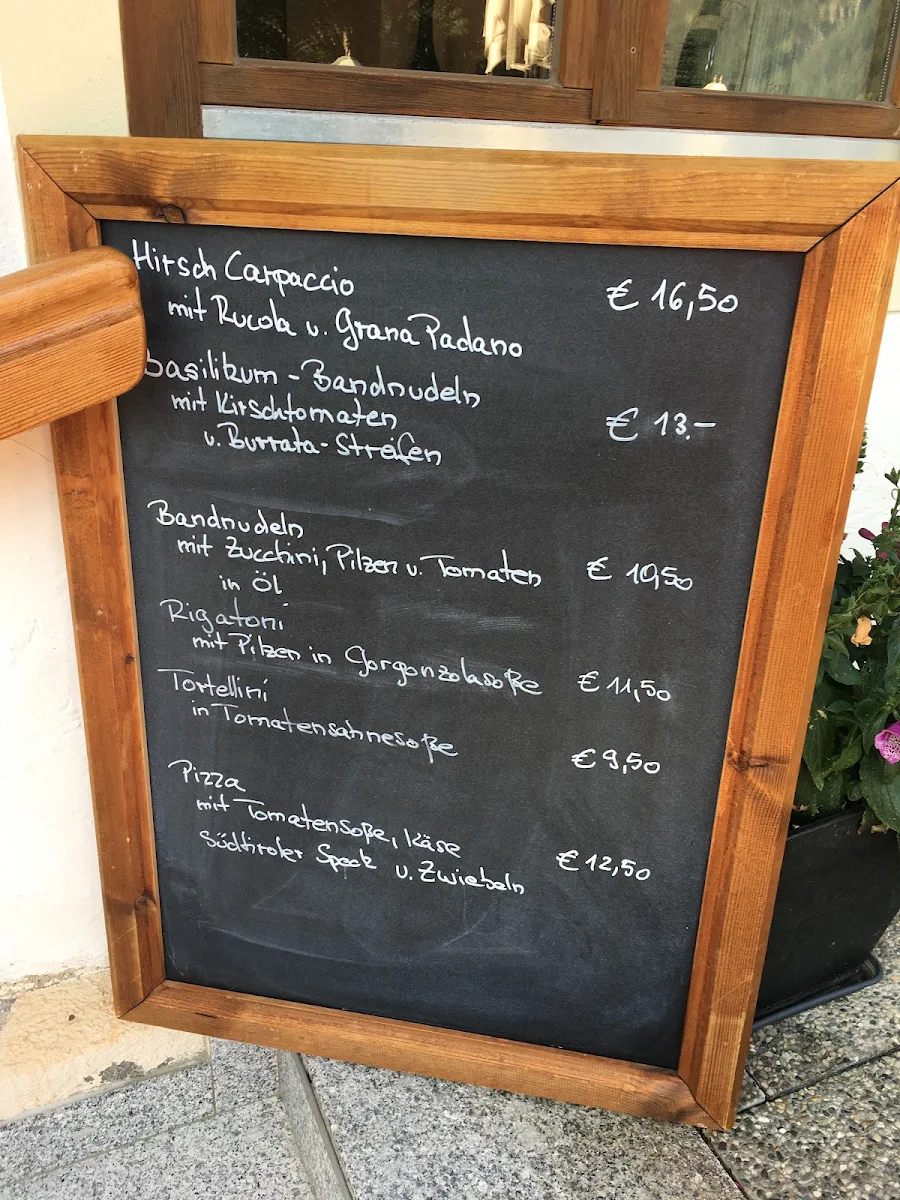 Hirsch Carpaccio € 16,50
mit Rucola u. Grana Padano
Basilikum - Bandnudeln
mit Kirschtomaten € 13.-
u. Burrata - Streifen
Bandnudeln
mit Zucchini, Pilzen u. Tomaten € 10,50
in Öl
Rigatoni
mit Pilzen in Gorgonzolasoße € 11,50
Tortellini
in Tomatensahnesoße € 9,50
Pizza
mit Tomatensoße, Käse € 12,50
Südtiroler Speck u. Zwiebeln